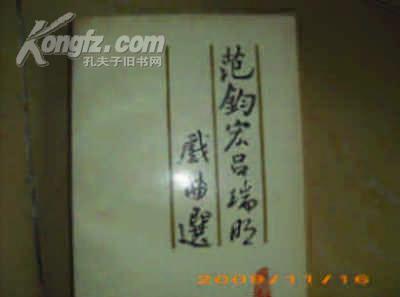 Kongfz.com
孔夫子旧书网
范钧宏吕瑞明
戏曲選
2009/11/16